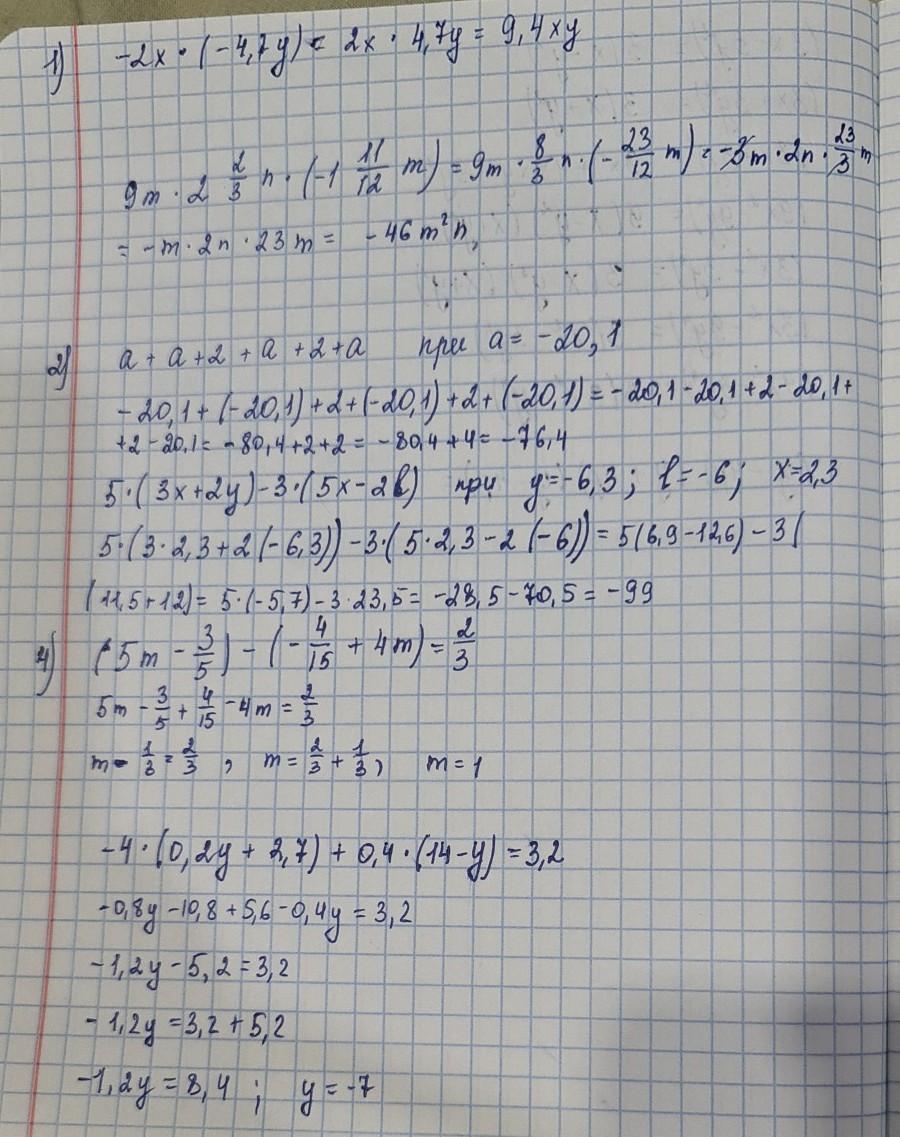 1) -2x · (-4,7y) = 2x · 4,7y = 9,4xy
9m · 2 2/3 n · (-1 11/12 m) = 9m · 8/3 n · (- 23/12 m) = -3m · 2n · 23/3 m
= -m · 2n · 23m = -46m²n,
2) a + a + 2 + a + 2 + a при a = -20,1
-20,1 + (-20,1) + 2 + (-20,1) + 2 + (-20,1) = -20,1 - 20,1 + 2 - 20,1 +
+2 - 20,1 = -80,4 + 2 + 2 = -80,4 + 4 = -76,4
5 · (3x + 2y) - 3 · (5x - 2b) при y = -6,3; b = -6; x = 2,3
5 · (3 · 2,3 + 2(-6,3)) - 3 · (5 · 2,3 - 2(-6)) = 5(6,9 - 12,6) - 3(
(11,5 + 12) = 5 · (-5,7) - 3 · 23,5 = -28,5 - 70,5 = -99
4) (5m - 3/5) - (- 4/15 + 4m) = 2/3
5m - 3/5 + 4/15 - 4m = 2/3
m - 1/3 = 2/3 , m = 2/3 + 1/3 , m = 1
-4 · (0,2y + 2,7) + 0,4 · (14 - y) = 3,2
-0,8y - 10,8 + 5,6 - 0,4y = 3,2
-1,2y - 5,2 = 3,2
-1,2y = 3,2 + 5,2
-1,2y = 8,4 ; y = -7